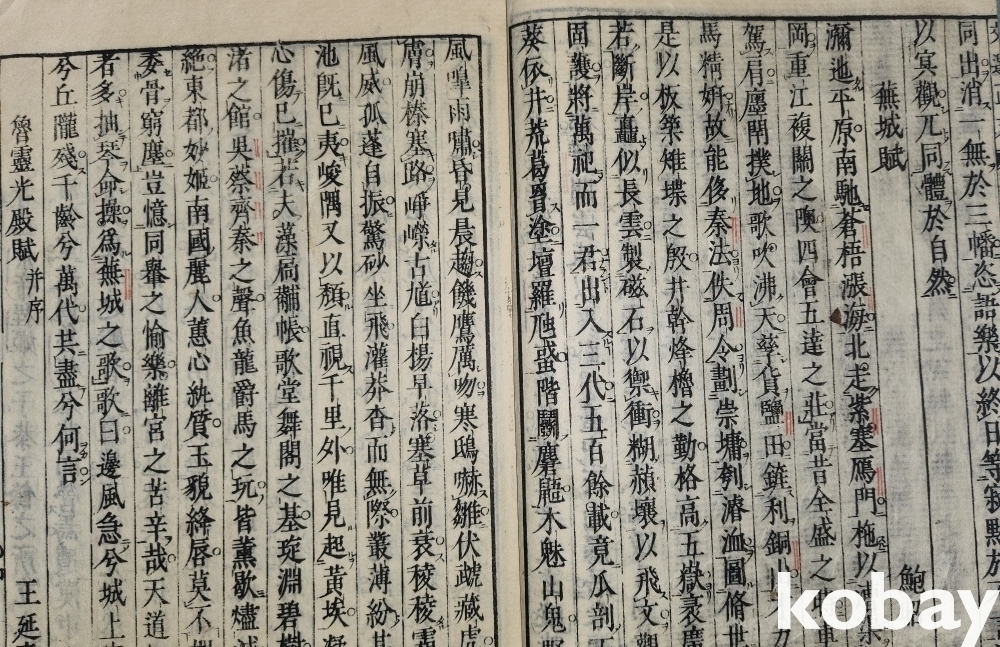 同出消一無於三幡恣語樂以終日等寂默於
以冥觀兀同體於自然
蕪城賦 鮑
瀰迤平原南馳蒼梧漲海北走紫塞鴈門柂以
岡重江複關之隩四會五達之莊當昔全盛之時車
駕肩廛閈撲地歌吹沸天孳貨鹽田鏟利銅山才力
馬精妍故能侈秦法佚周令劃崇墉刳濬洫圖脩世
是以板築雉堞之殷井幹烽櫓之勤格高五嶽袤廣
若斷岸矗似長雲製磁石以禦衝糊赬壤以飛文觀
固護將萬祀而一君出入三代五百餘載竟瓜剖而
葵依井荒葛罥塗壇羅虺蜮階鬭麏鼯木魅山鬼野
風嘷雨嘯昏見晨趨饑鷹厲吻寒鴟嚇雛伏虣藏虎
膚崩榛塞路崢嶸古馗白楊早落塞草前衰稜稜霜
風威孤蓬自振驚砂坐飛灌莽杳而無際叢薄紛其
池既已夷峻隅又以頹直視千里外唯見起黃埃凝
心傷已摧若夫藻扃黼帳歌堂舞閣之基琁淵碧樹
渚之館吳蔡齊秦之聲魚龍爵馬之玩皆薰歇燼滅
絕東都妙姬南國麗人蕙心紈質玉貌絳唇莫不
委骨窮塵豈憶同轝之愉樂離宮之苦辛哉天道
者多抽琴命操爲蕪城之歌歌曰邊風急兮城上
兮丘隴殘千齡兮萬代共盡兮何言
魯靈光殿賦并序 王延
kobay